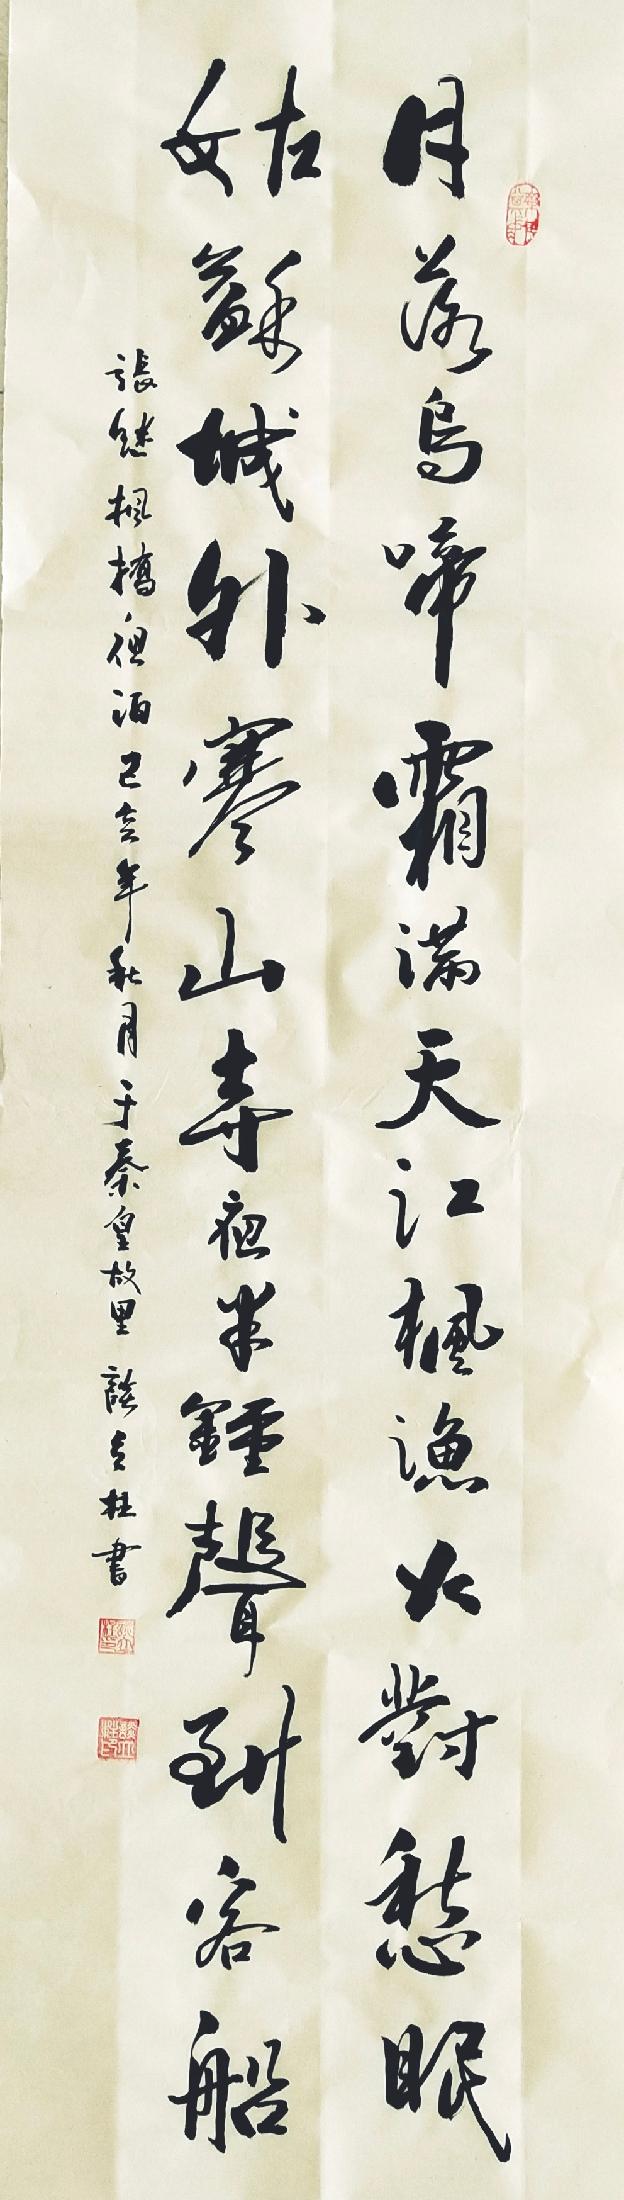 月落烏啼霜满天江楓漁火對愁眠
姑蘇城外寒山寺夜半鐘聲到客船
張継楓橋夜泊己亥年秋月于秦皇故里 談立柱書